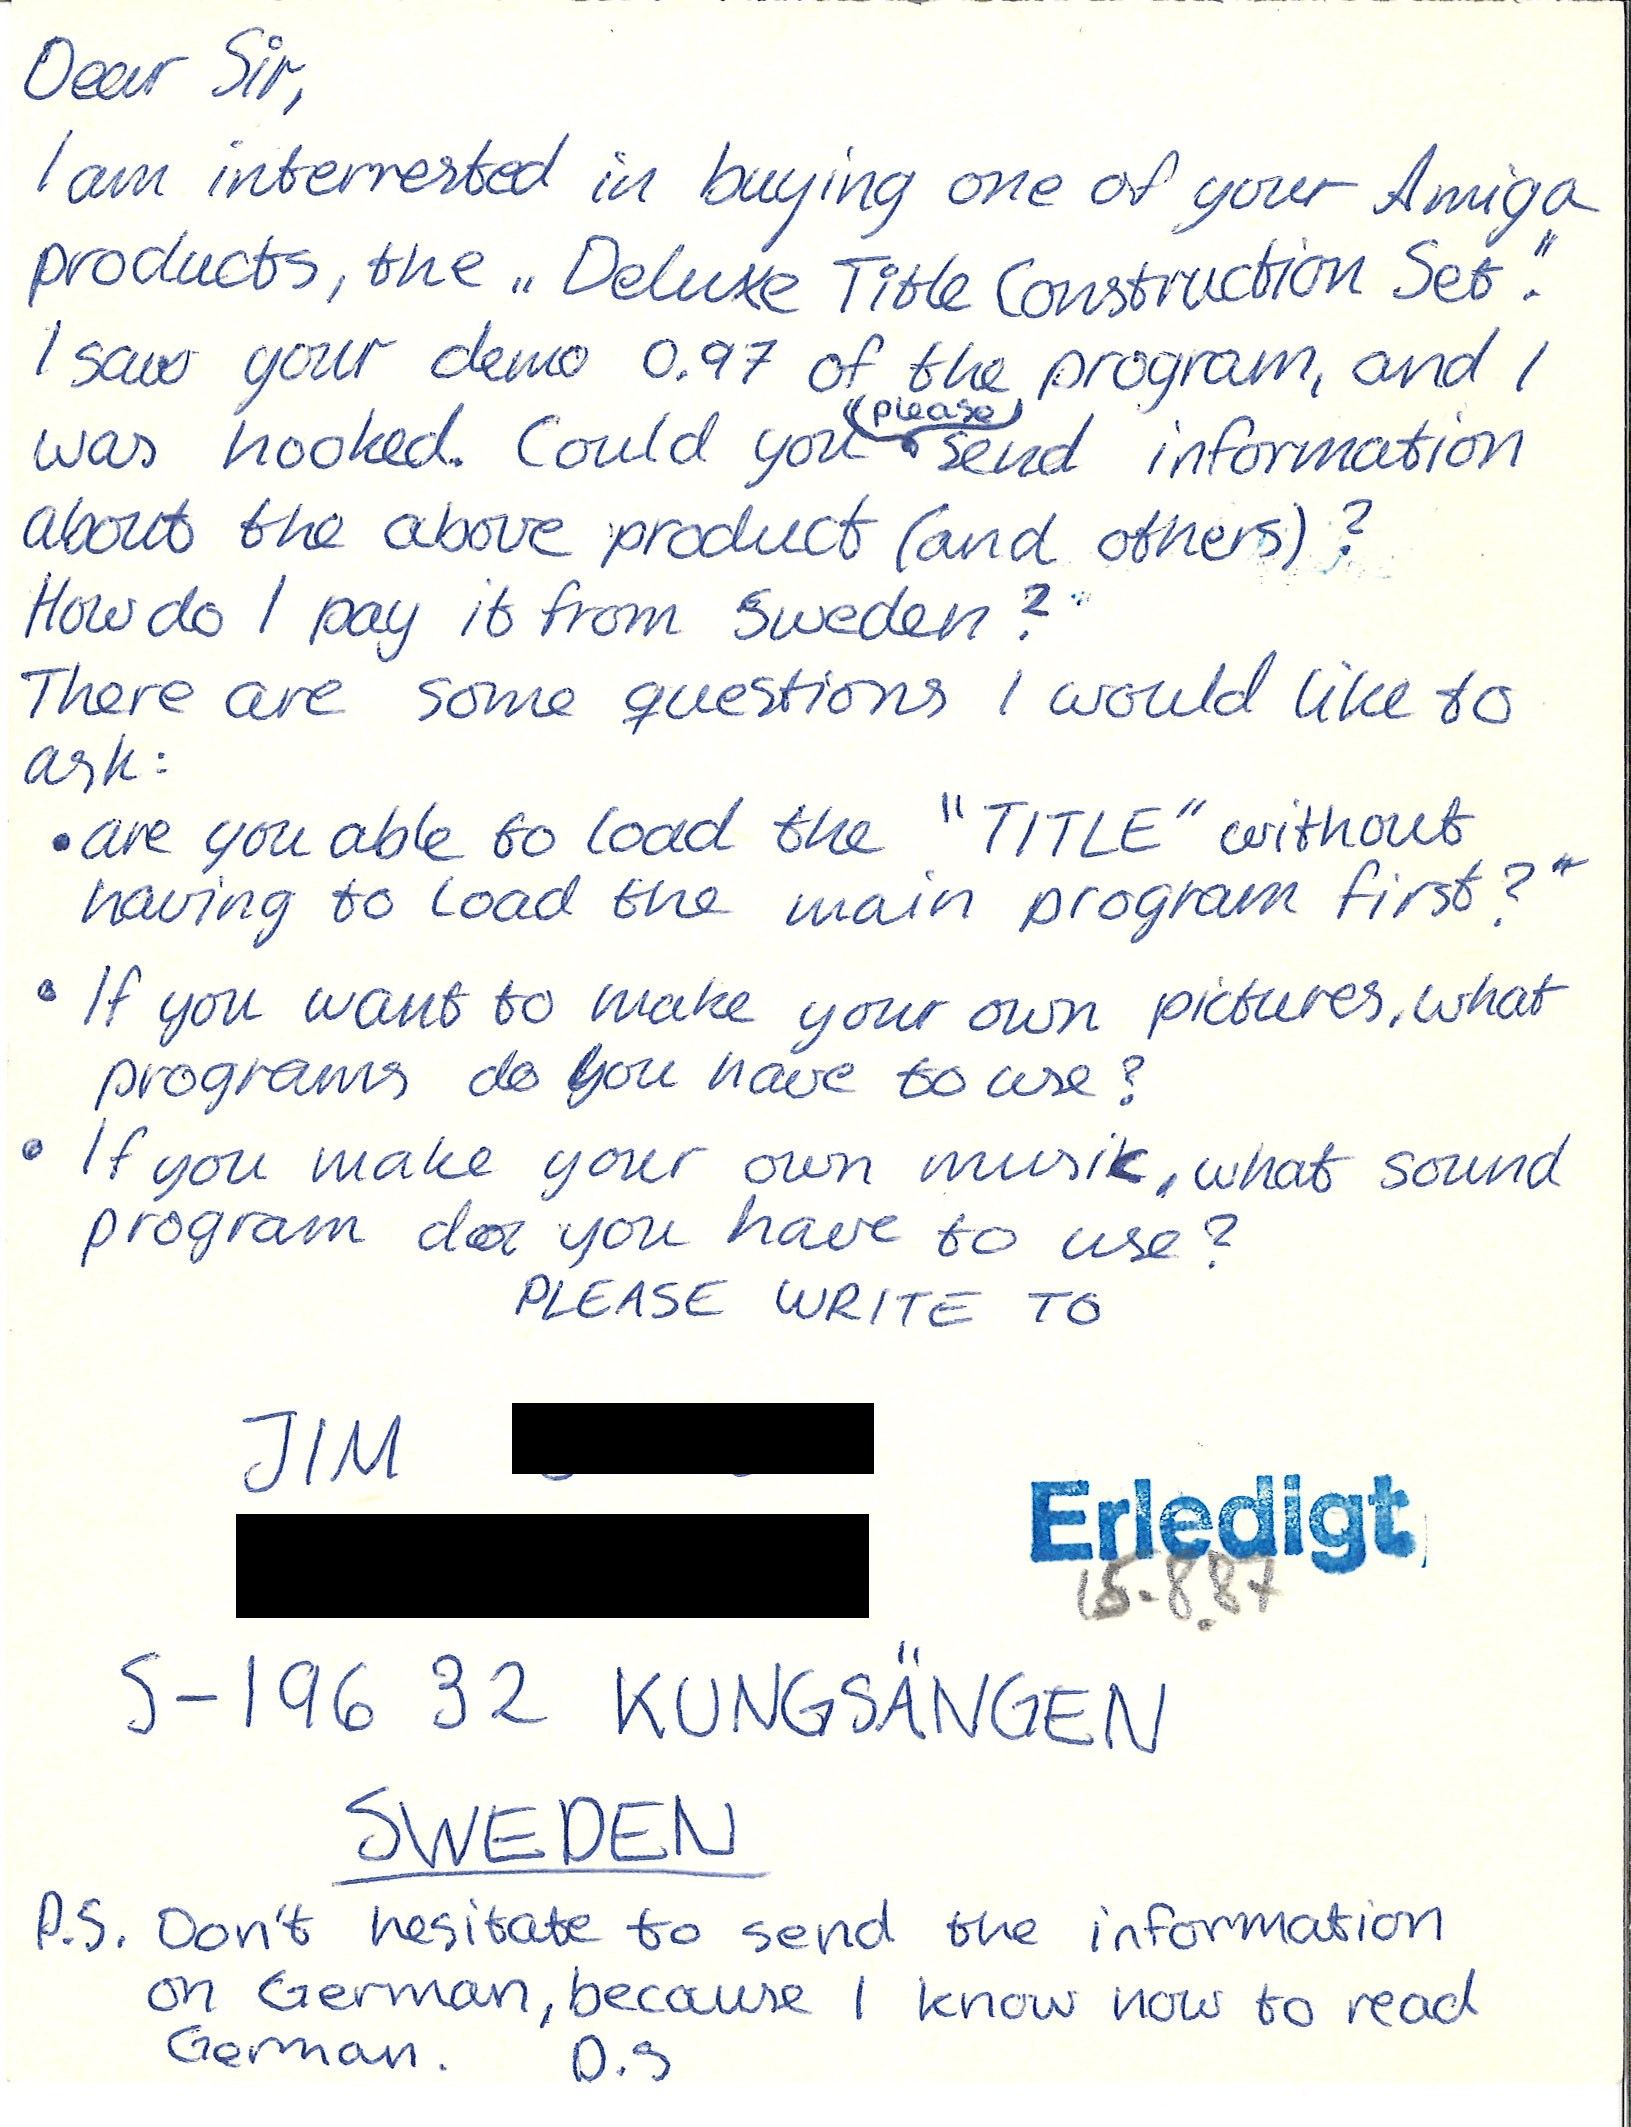 Dear Sir,
I am interrested in buying one of your Amiga
products, the „Deluxe Title Construction Set".
I saw your demo 0.97 of the program, and I
was hooked. Could you (please) send information
about the above product (and others)?
How do I pay it from Sweden?
There are some questions I would like to
ask:
• are you able to load the "TITLE" without
having to load the main program first?"
• If you want to make your own pictures, what
programs do you have to use?
• If you make your own music, what sound
program do you have to use?
PLEASE WRITE TO
JIM
Erledigt
15.8.87
S-196 32 KUNGSÄNGEN
SWEDEN
P.S. Don't hesitate to send the information
on German, because I know how to read
German. D.S